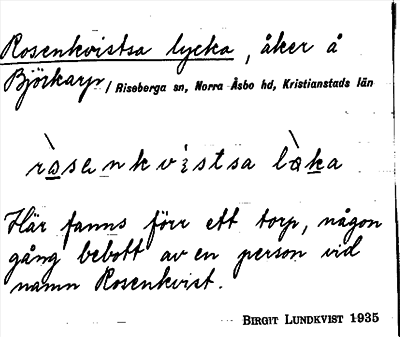 Rosenkvistsa lycka, åker å
Björkarp / Riseberga sn, Norra Åsbo hd, Kristianstads län
ròsenkvistsa lòka
Här fanns förr ett torp, någon
gång bebott av en person vid
namn Rosenkvist.
BIRGIT LUNDKVIST 1935